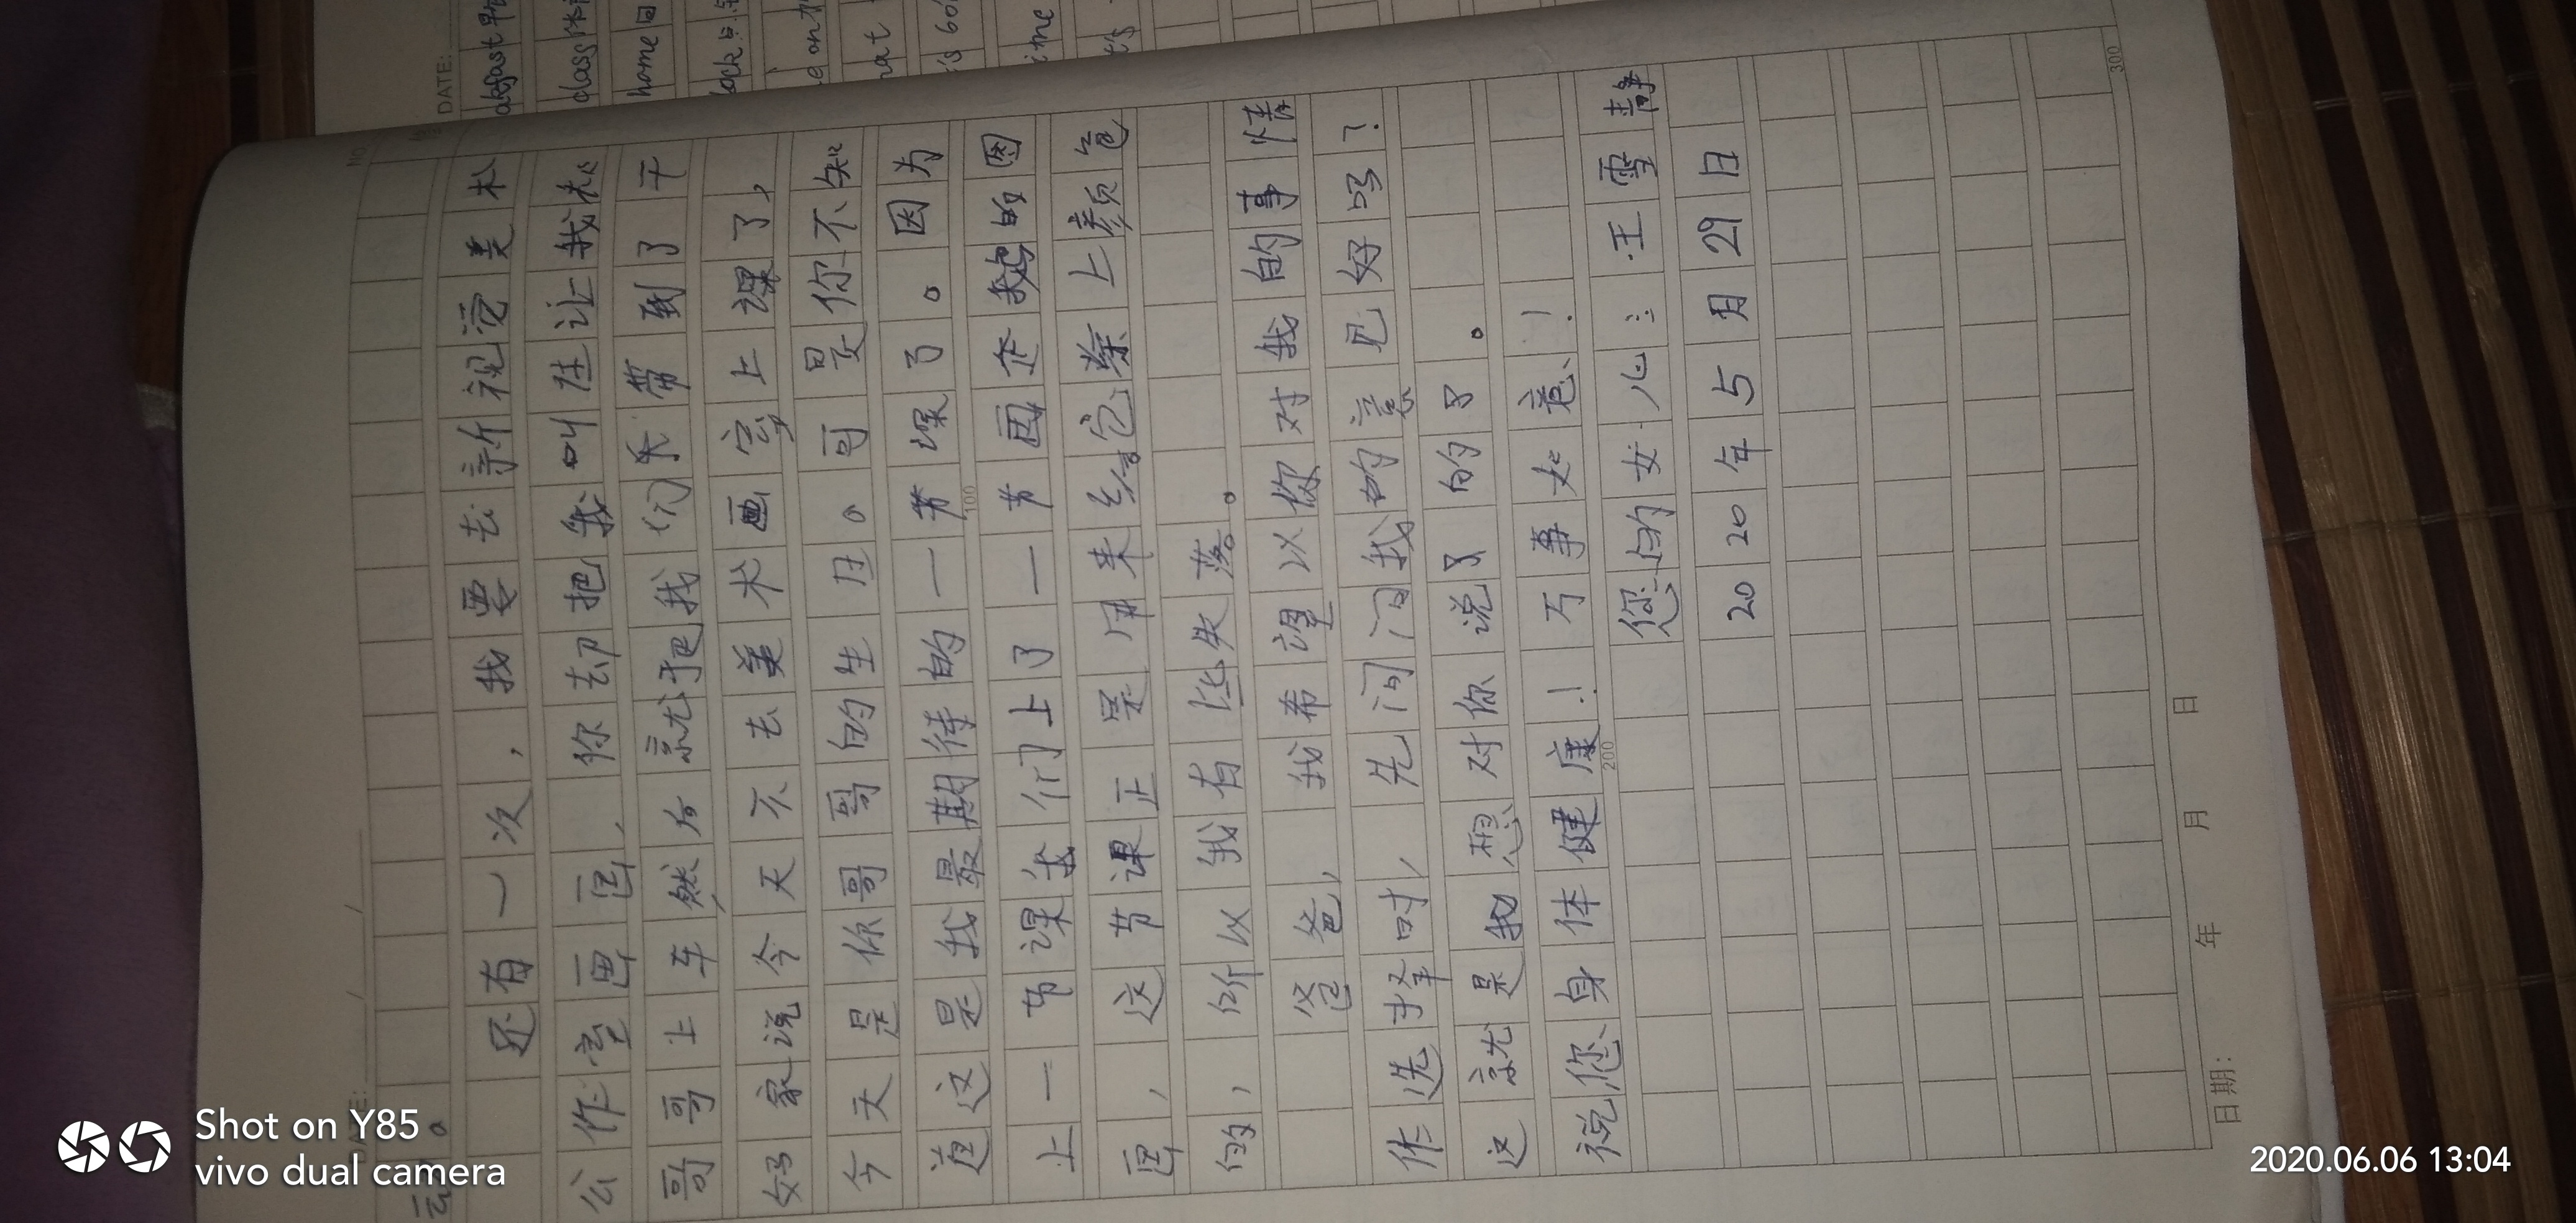 云。
还有一次，我要去新视觉美术
公作室画画，你却把我叫住让我和
哥哥上车然后就把我们乐带到了干
好家说今天不去美术画室上课了，
今天是你哥哥的生日。可是你不知
道这是我最期待的一节课了。因为
上一节课我们上了一节画企鹅的图
画，这节课正是用来给它涂上颜色
的，所以我有些失落。
爸爸，我希望以你对我的事情
作选择时，先问问我的意见好吗？
这就是我想对你说了的了。
祝您身体健康！万事如意！
您的女儿：王雪静
2020年5月29日
DATE:
akfast
class
home 回
ock
e on
hat
ime
NO
100
200
300
日期： 年 月 日
Shot on Y85
vivo dual camera
2020.06.06 13:04